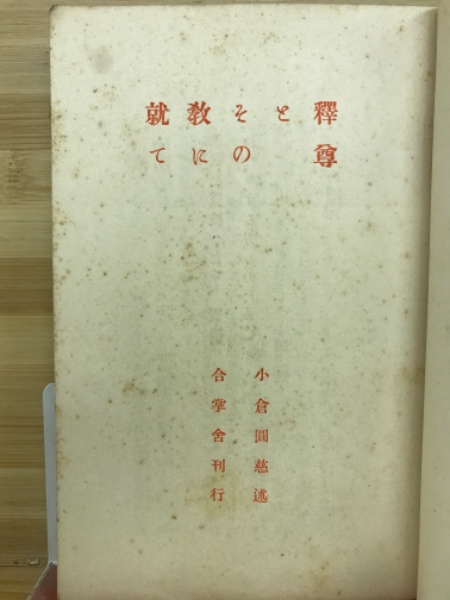 釋尊とその敎に就て
小倉圓慈述
合掌舍刊行